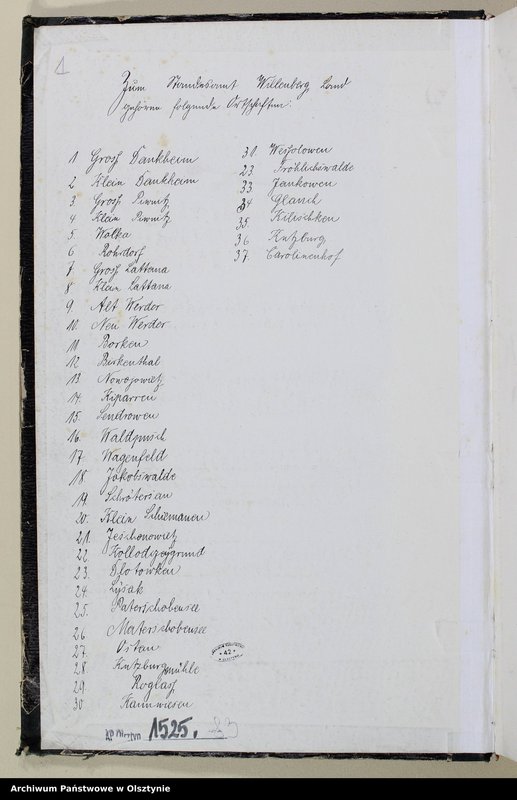 1
Zum Standesamt Willenberg Land
gehören folgende Ortschaften:
1 Gross Dankheim
2 Klein Dankheim
3 Gross Piwnitz
4 Klein Piwnitz
5. Wolka
6 Rohrdorf
7. Gross Lattana
8 Klein Lattana
9. Alt Werder
10. Neu Werder
11 Borken
12 Birkenthal
13. Nowojowietz
14. Kiparren
15. Sendrowen
16. Waldpusch
17 Wagenfeld
18. Jakobswalde
19. Schrötersau
20. Klein Schiemanen
21. Jeschonowietz
22 Kollodzeygrund
23. Dlotowken
24. Lysak
25. Paterschobensee
26 Materschobensee
27. Ostau
28 Kutzburgmühle
29 Roglass
30 Kannwiesen
31. Wessolowen
23. Fröhlichswalde
33 Jankowen
34 Glauch
35. Kilischken
36 Kutzburg
37. Carolinenhof
42
1525.
Archiwum Państwowe w Olsztynie